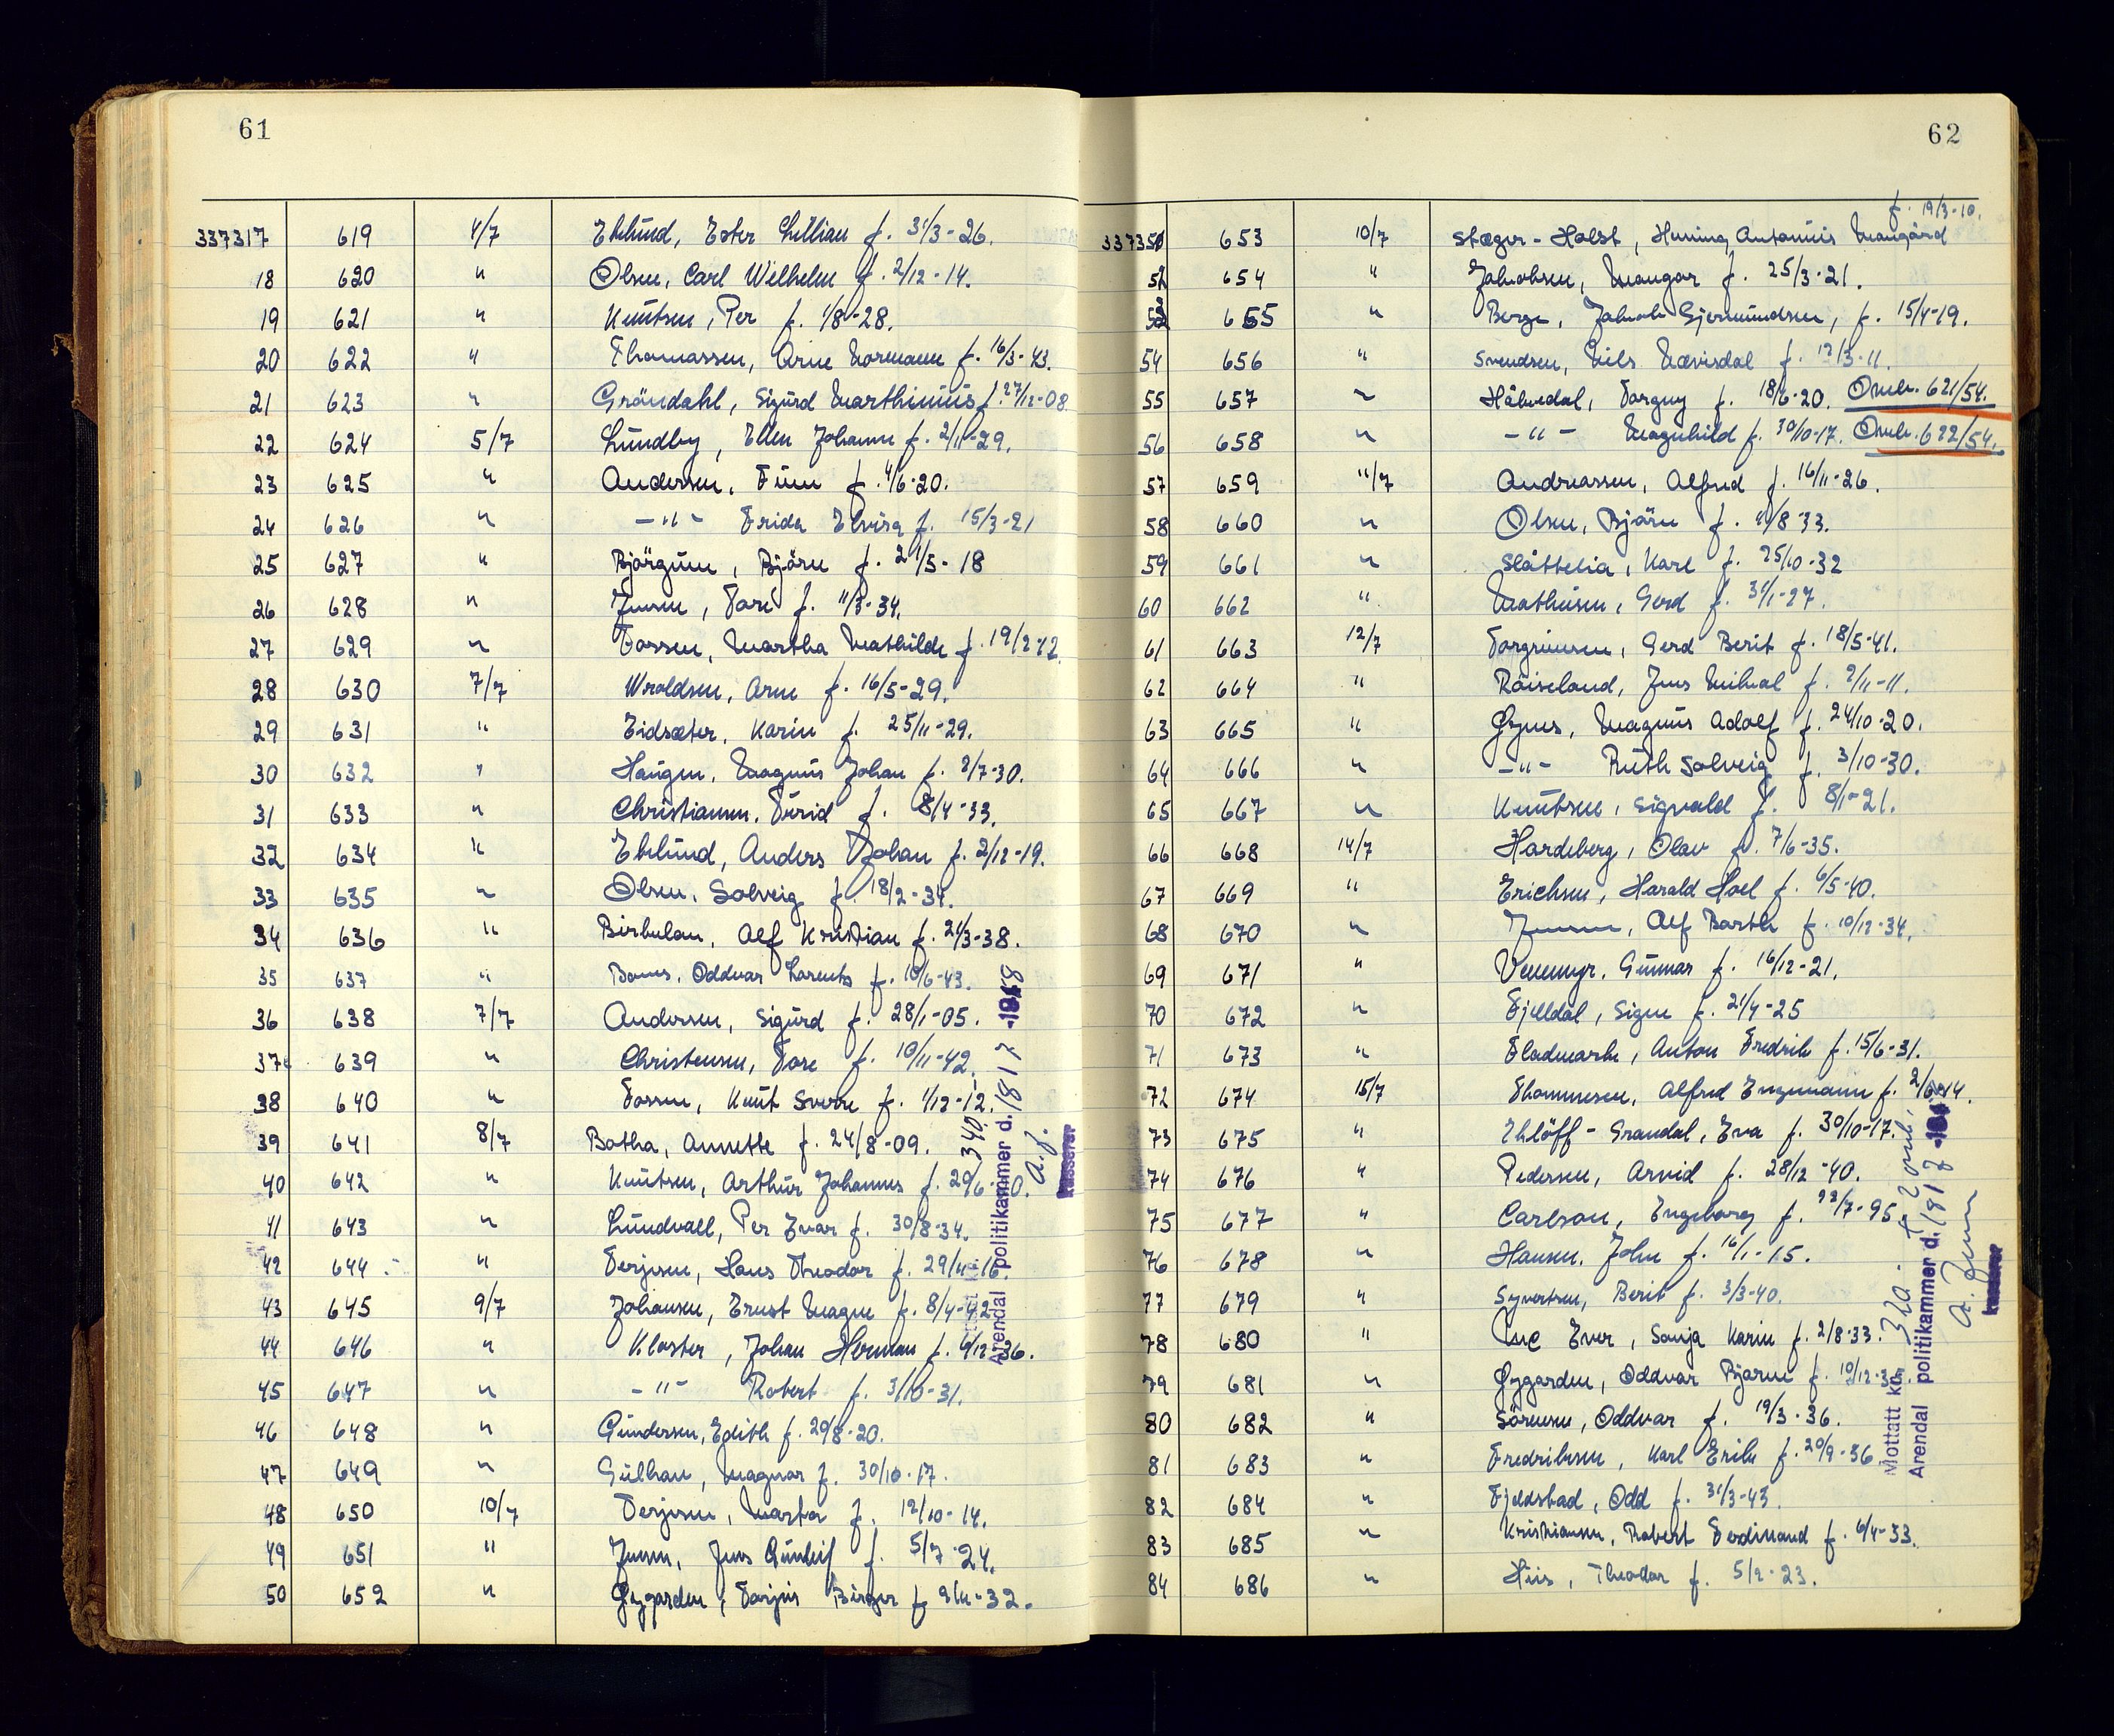 61
337317 619 4/7 Eklund, Ester Lillian f. 31/3-26.
18 620 " Olsen, Carl Wilhelm f. 2/12-14.
19 621 " Knutsen, Per f. 1/8-28.
20 622 " Thomassen, Arne Normann f. 16/3-43.
21 623 " Gröndahl, Sigurd Marthinius f. 27/12-08.
22 624 5/7 Lundby, Ellen Johanne f. 2/11-29.
23 625 " Andersen, Finn f. 4/6-20.
24 626 " -"- Frida Elvira f. 15/3-21
25 627 " Björgum, Björn f. 21/5-18
26 628 " Jensen, Tore f. 11/3-34.
27 629 " Fossen, Martha Mathilde f. 19/2-12.
28 630 7/7 Wroldsen, Arne f. 16/5-29.
29 631 " Eidsæter, Karin f. 25/11-29.
30 632 " Haugen, Magnus Johan f. 2/7-30.
31 633 " Christiansen, Turid f. 8/4-33.
32 634 " Eklund, Anders Johan f. 2/12-19.
33 635 " Olsen, Solveig f. 18/2-34.
34 636 " Birkeland, Alf Kristian f. 21/3-38.
35 637 " Oddvar Lorentz f. 10/6-43.
36 638 7/7 Andersen, Sigurd f. 28/1-05.
37 639 " Christensen, Tore f. 10/11-42.
38 640 " Fossen, Knut Sverre f. 1/12-12.
39 641 8/7 Botha, Annette f. 24/8-09.
40 642 " Knutsen, Arthur Johannes f. 29/6-
41 643 " Lundvall, Per Ivar f. 30/8-34.
42 644 " Terjesen, Hans Theodor f. 29/11-16.
43 645 9/7 Johansen, Ernst Magne f. 8/4-42
44 646 " Kloster, Johan Herman f. 6/12-36.
45 647 " -"- Robert f. 3/10-31.
46 648 " Gundersen, Edith f. 29/8-20.
47 649 " Gulhav, Magnar f. 30/10-17.
48 650 10/7 Terjesen, Marta f. 12/10-14.
49 651 " Jensen, Jens Gunleif f. 5/7-24.
50 652 " Øygarden, Torjus Birger f. 9/11-32.
340.
Arendal politikammer d. 18/7-1948
A.J.
kasserer
62
f. 19/3-10.
337351 653 10/7 Stæger-Holst, Henning Antonius Mangård
52 654 " Jakobsen, Mangor f. 25/3-21.
53 655 " Berge, Jakob Gjermundsen, f. 15/4-19.
54 656 " Svendsen, Nils Nævisdal f. 12/3-11.
55 657 " Håkedal, Torgny f. 18/6-20. Omb. 621/54.
56 658 " -"- Magnhild f. 30/10-17. Omb. 622/54.
57 659 11/7 Andreassen, Alfred f. 16/11-26.
58 660 " Olsen, Björn f. 11/8-33.
59 661 " Slåttelia, Karl f. 25/10-32
60 662 " Mathisen, Gerd f. 31/1-27.
61 663 12/7 Torgrimsen, Gerd Berit f. 18/5-41.
62 664 " Röiseland, Jens Mikal f. 2/11-11.
63 665 " Øynes, Magnus Adolf f. 24/10-20.
64 666 " -"- Ruth Solveig f. 3/10-30.
65 667 " Knutsen, Sigvald f. 8/1-21.
66 668 14/7 Hardeberg, Olav f. 7/6-35.
67 669 " Erichsen, Harald Hoel f. 6/5-40.
68 670 " Jensen, Alf Barth f. 10/12-34.
69 671 " Venemyr, Gunnar f. 16/12-21.
70 672 " Fjelldal, Signe f. 21/4-25
71 673 " Fladmark, Anton Fredrik f. 15/6-31.
72 674 15/7 Thommesen, Alfred Engemann f.
73 675 " Ehlöff-Grandal, Eva f. 30/10-17.
74 676 " Pedersen, Arvid f. 28/12-40.
75 677 " Carlson, Engeborg f. 22/7-95
76 678 " Hansen, John f. 16/1-15.
77 679 " Syvertsen, Berit f. 3/3-40.
78 680 " Mc Ever, Sonja Karin f. 2/8-33.
79 681 " Øygarden, Oddvar Bjarne f. 10/12-
80 682 " Sörensen, Oddvar f. 19/3-36.
81 683 " Fredriksen, Karl Erik f. 20/9-36
82 684 " Fjeldstad, Odd f. 31/3-43.
83 685 " Kristiansen, Robert Ferdinand f. 6/4-33.
84 686 " Hiis, Theodor f. 5/2-23.
320.- + 2 omb.
Mottatt kr.
Arendal politikammer d. 19/7-194
A. Jensen
kasserer